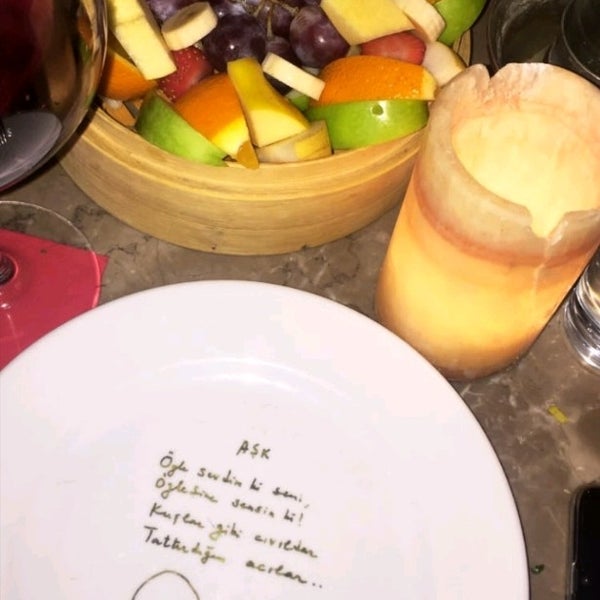 AŞK
Öyle sevdim ki seni,
Öylesine sensin ki!
Kuşlar gibi cıvıldar
Tattırdığın acılar..